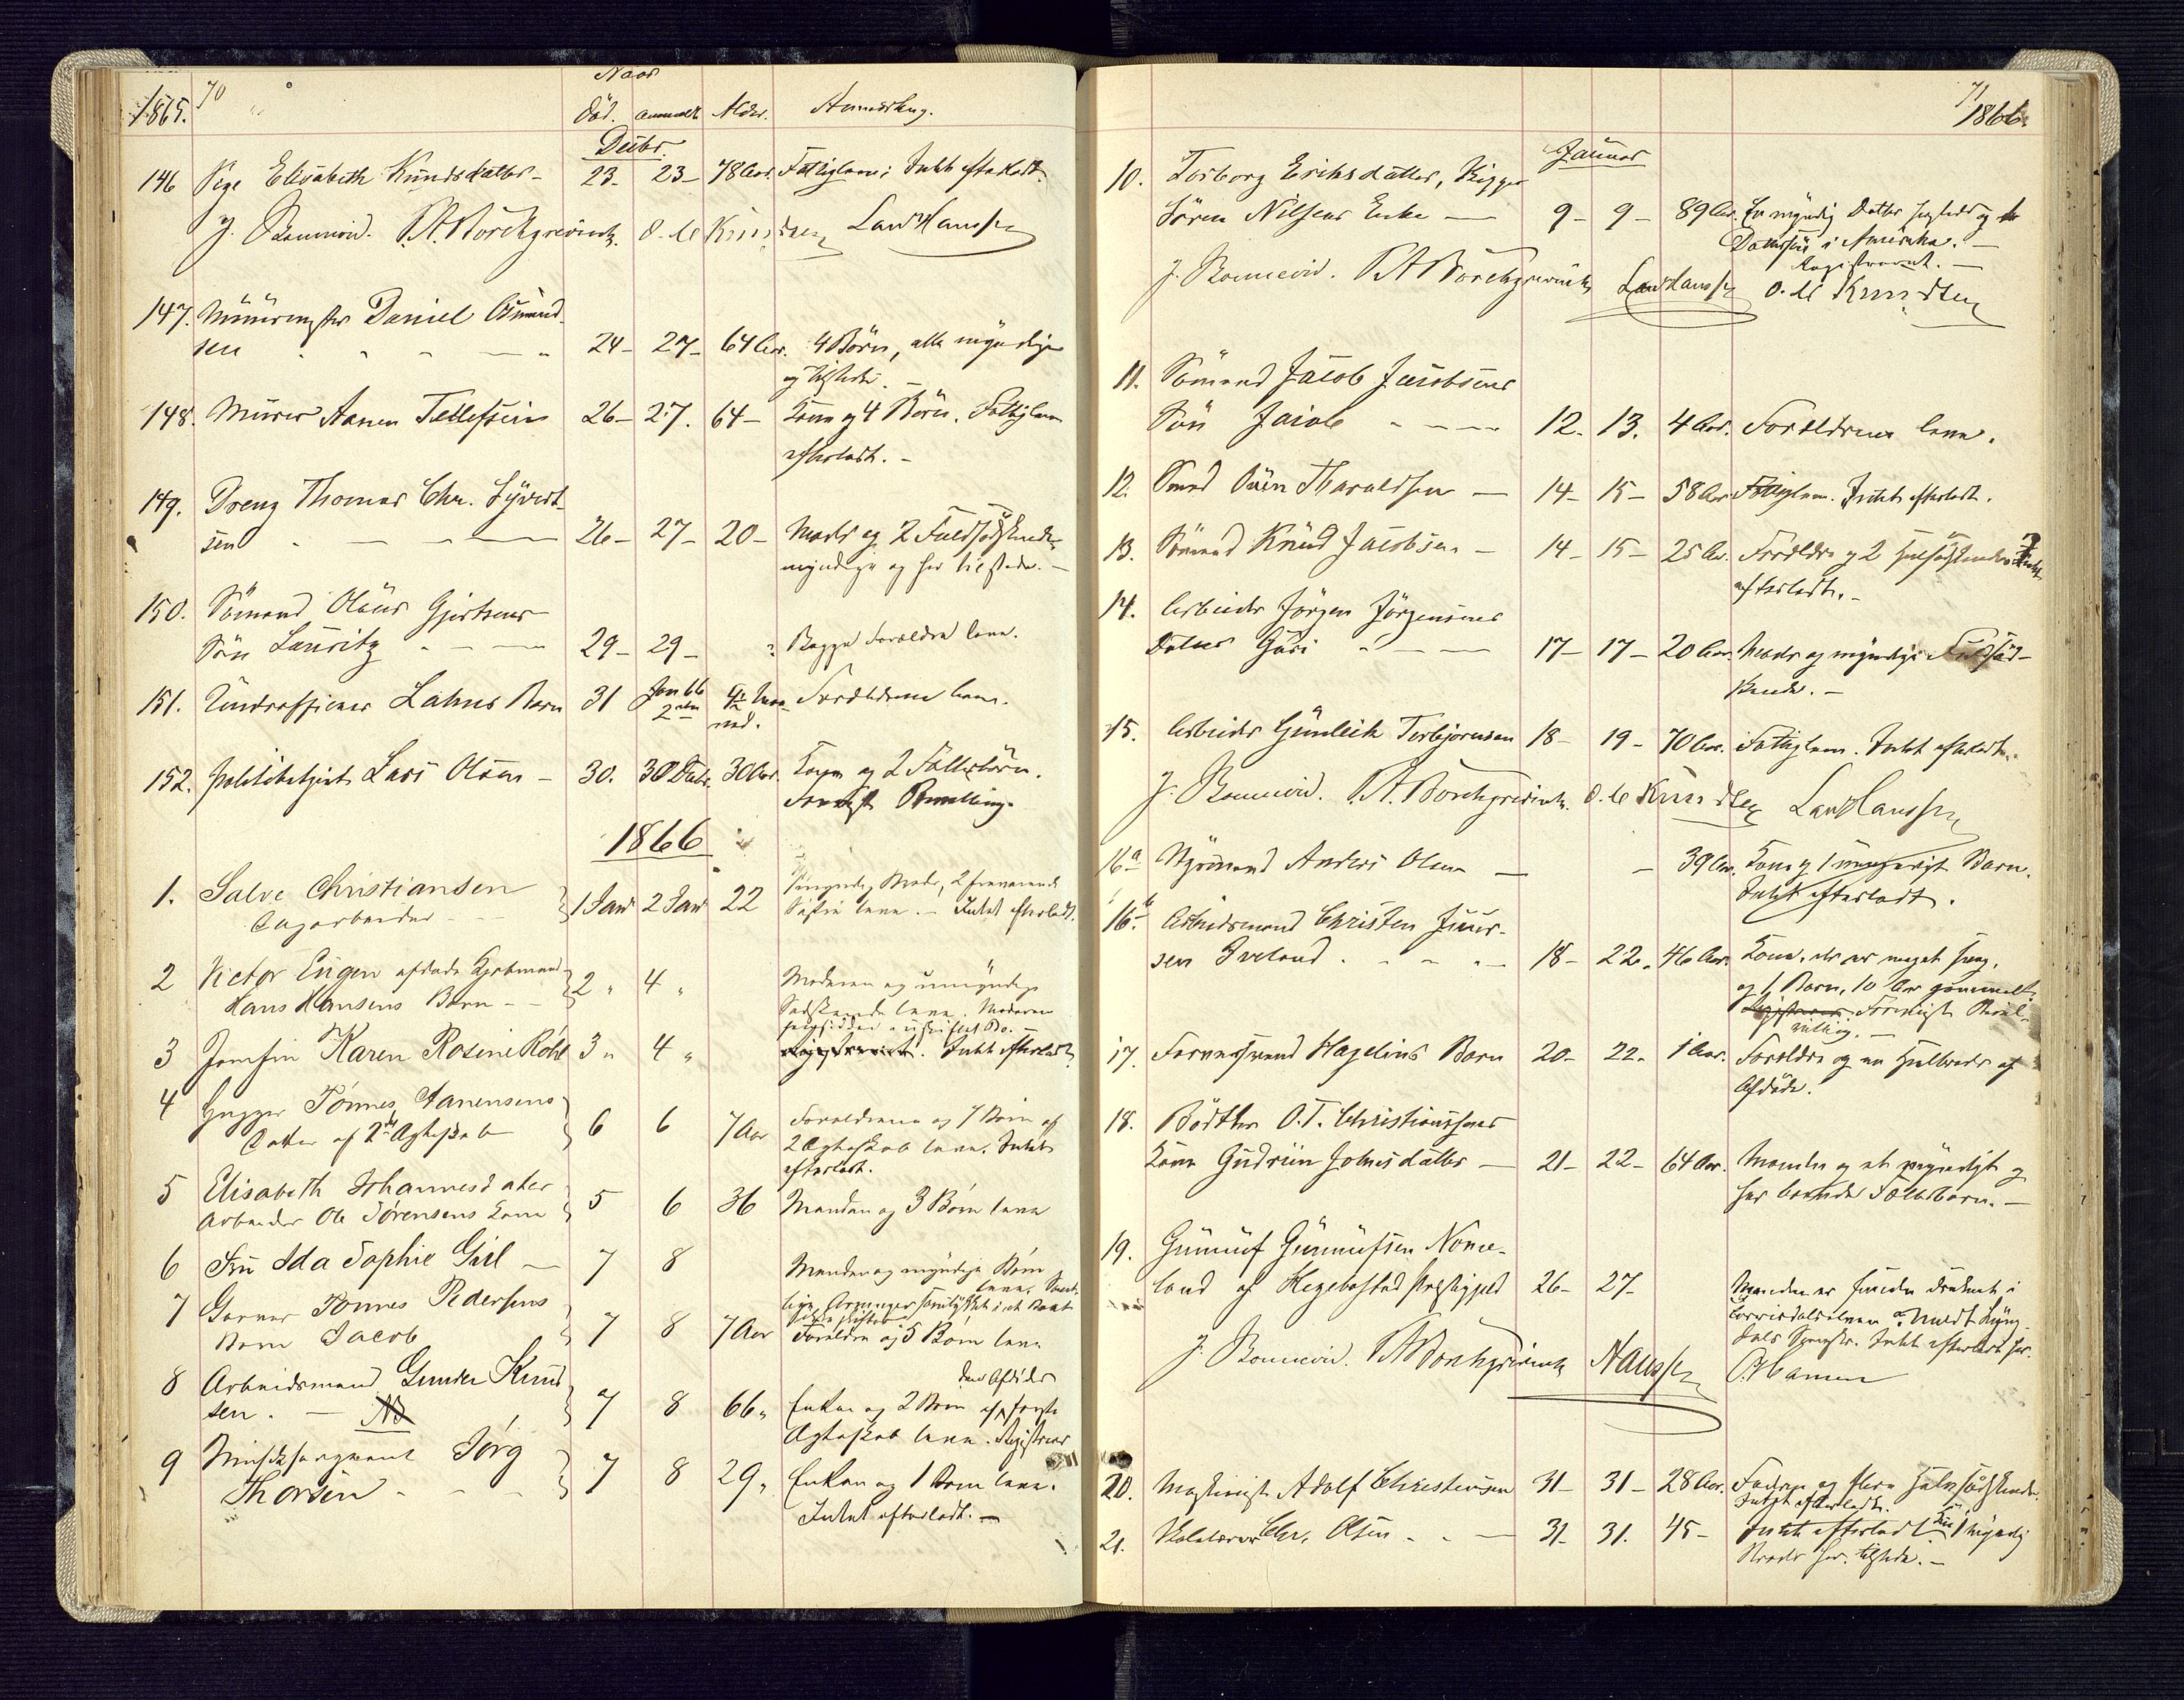 1865.
70
Naar
död. anmeldt Alder. Anmærkning.
Decbr.
146 Pige Elisabeth Knudsdatter - 23- 23- 78 Aar. Fattiglem; Intet efterladt.
J. Bonnevie. P.A. Borchgrevink. O. C. Knudsen Lau Hanssen
147. Murermester Daniel Osmund-
sen - - - 24- 27- 64 Aar. 4 Börn, alle myndige
og tilstede. -
148. Murer Aanen Tellefsen 26- 27. 64- Kone og 4 Börn. Fattiglem
efterladt. -
149. Dreng Thomas Chr. Syvert-
sen - - - 26- 27- 20- Moder og 2 Fuldsödskende
myndige og her tilstede. -
150. Sömand Olaus Gjertsens
Sön Lauritz - - - 29- 29- " Begge Forældre leve.
151. Underofficier Lahns Barn 31 Jan 66 2den 4½ Maa- Forældrene leve.
ned.
152. Politibetjent Lars Olsen - 30. 30 Decbr. 30 Aar. Kone og 2 Fællesbörn.
1866
1. Salve Christiansen
Dagarbeider - - 1 Janr 2 Janr 22 Moder, 2 fraværende
Søstre leve. - Intet efterladt.
2 Victor Eugen afdøde Kjøbmand
Hans Hansens Barn - - 2 " 4 " Moderen og umyndige
Sødskende leve. Moderen
sidder i uskiftet Bo. -
3 Jomfru Karen Rosine Röhl 3 " 4 " Registreret. Intet efterladt
4 Tönnes Aanensens
Datter af 2det Ægteskab 6 6 7 Aar Forældrene og 7 Börn af
2 Ægteskab leve. Intet
efterladt.
5 Elisabeth Johannesdater
Arbeider Ole Sørensens Kone 5 6 36 Manden og 3 Börn leve
6 Fru Ida Sophie Giil - 7 8 Manden og myndige Börn
leve.
7 Garver Tönnes Pedersens
Barn Jacob 7 8 7 Aar Forældre og 5 Börn leve
8 Arbeidsmand Gunder Knud
sen. - 7 8 66 " Enken og 2 Börn af den Afdödes første
Ægteskab leve. Registreret
9 Musiksergeant Jörg
Thorsen - - - 7 8 29 " Enken og 1 Barn leve.
Intet efterladt. -
71
1866.
Januar
10. Torborg Eriksdatter, Rigger
Sören Nilsens Enke - 9- 9- 89 Aar. En myndig Datter her tilstede og to
Dattersön i Amerika. -
Registreret. -
J. Bonnevie. P.A. Borchgrevink Lau Hanssen O. C. Knudsen
11. Sömand Jacob Jacobsens
Sön Jacob - - - 12. 13. 4 Aar. Forældrene leve.
12. Smed Sven Tharaldsen - 14- 15- 58 Aar Fattiglem. Intet efterladt.
13. Sömand Knud Jacobsen - 14- 15- 25 Aar. Forældre og 2 Helsödskende. Intet
efterladt. -
14. Arbeider Jörgen Jörgensens
Datter Guri - - - 17- 17- 20 Aar. Moder og myndige Fuldsöd-
skende. -
15. Arbeider Gunleik Terbjornsen 18- 19- 70 Aar. Fattiglem. Intet efterladt.
J. Bonnevie. P.A. Borchgrevink. O. C. Knudsen Lau Hanssen
16a Styrmand Anders Olsen - - 39 Aar. Kone og 1 umyndigt Barn.
Intet efterladt.
16b Arbeidsmand Christen Juur-
sen Iveland - - - 18- 22. 46 Aar. Kone, der er meget syg,
og 1 Barn, 10 Aar gammelt.
17. Farversvend Hagelins Barn 20- 22. 1 Aar. Forældre og en Helbroder af
Afdöde.
18. Bödker O. T. Christianssens
Kone Gudrun Johnsdatter - 21- 22- 64 Aar. Manden og et myndigt og
her boende Fællesbarn. -
19. Gunnuf Gunnufsen Nome-
land af Hegebostad Præstegjeld 26- 27- Manden er funden druknet i
Torrisdalselven
Sogn. Intet efterladt her.
J. Bonnevie. P.A. Borchgrevink Hanssen
20. Maskinist Adolf Christensen 31- 31- 28 Aar. Fader og flere Halvsödskende.
Intet efterladt.
21. Skolelærer Chr. Olsen - - 31- 31. 45- Intet efterladt 1 myndig
Broder her tilstede. -